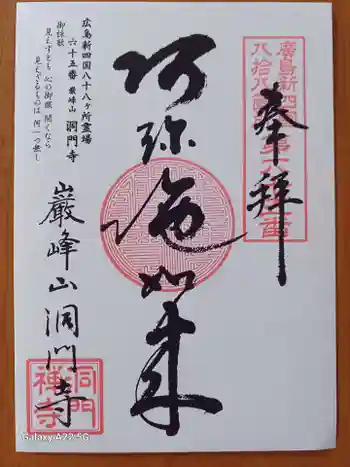 奉拝
廣島新四国
八拾八ヶ所
第六十五番
阿弥陀如来
広島新四国八十八ヶ所霊場
六十五番 巌峰山 洞門寺
御詠歌
見えずとも 心の御眼 開くなら
見えざるものは 何一つ無し
巖峰山 洞門寺
洞門
禅寺
Galaxy A22 5G